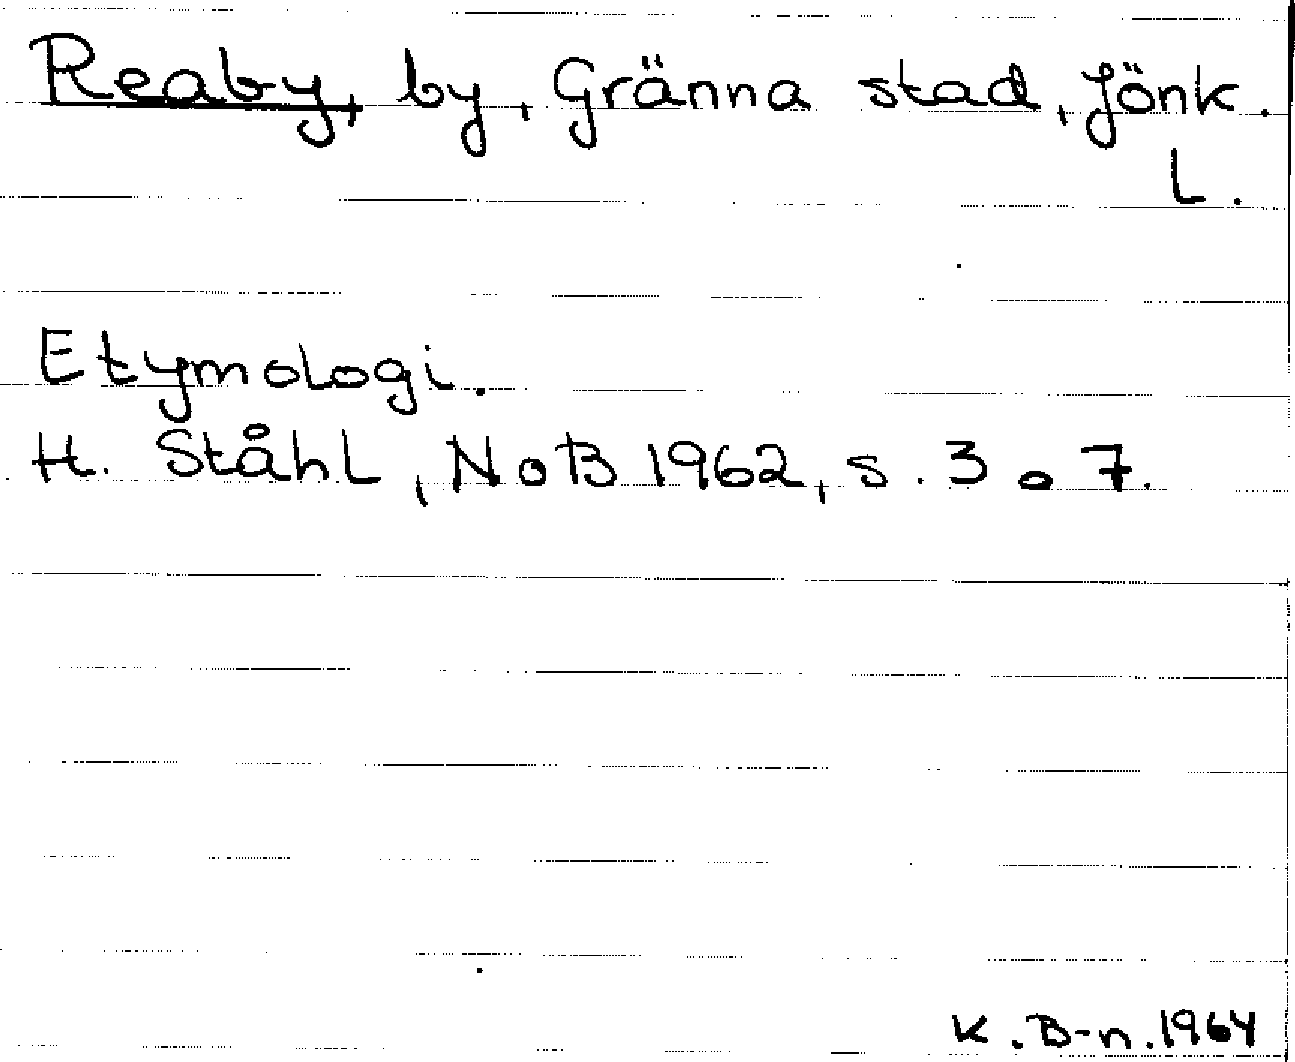 Reaby, by, Gränna stad, Jönk.
L.
Etymologi.
H. Ståhl, NoB 1962, s. 3 o 7.
K. B-n. 1964